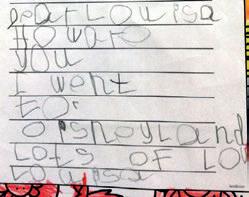 Dear Louisa
How are
you
I went
to
Disneyland
Lots of LO
Louisa